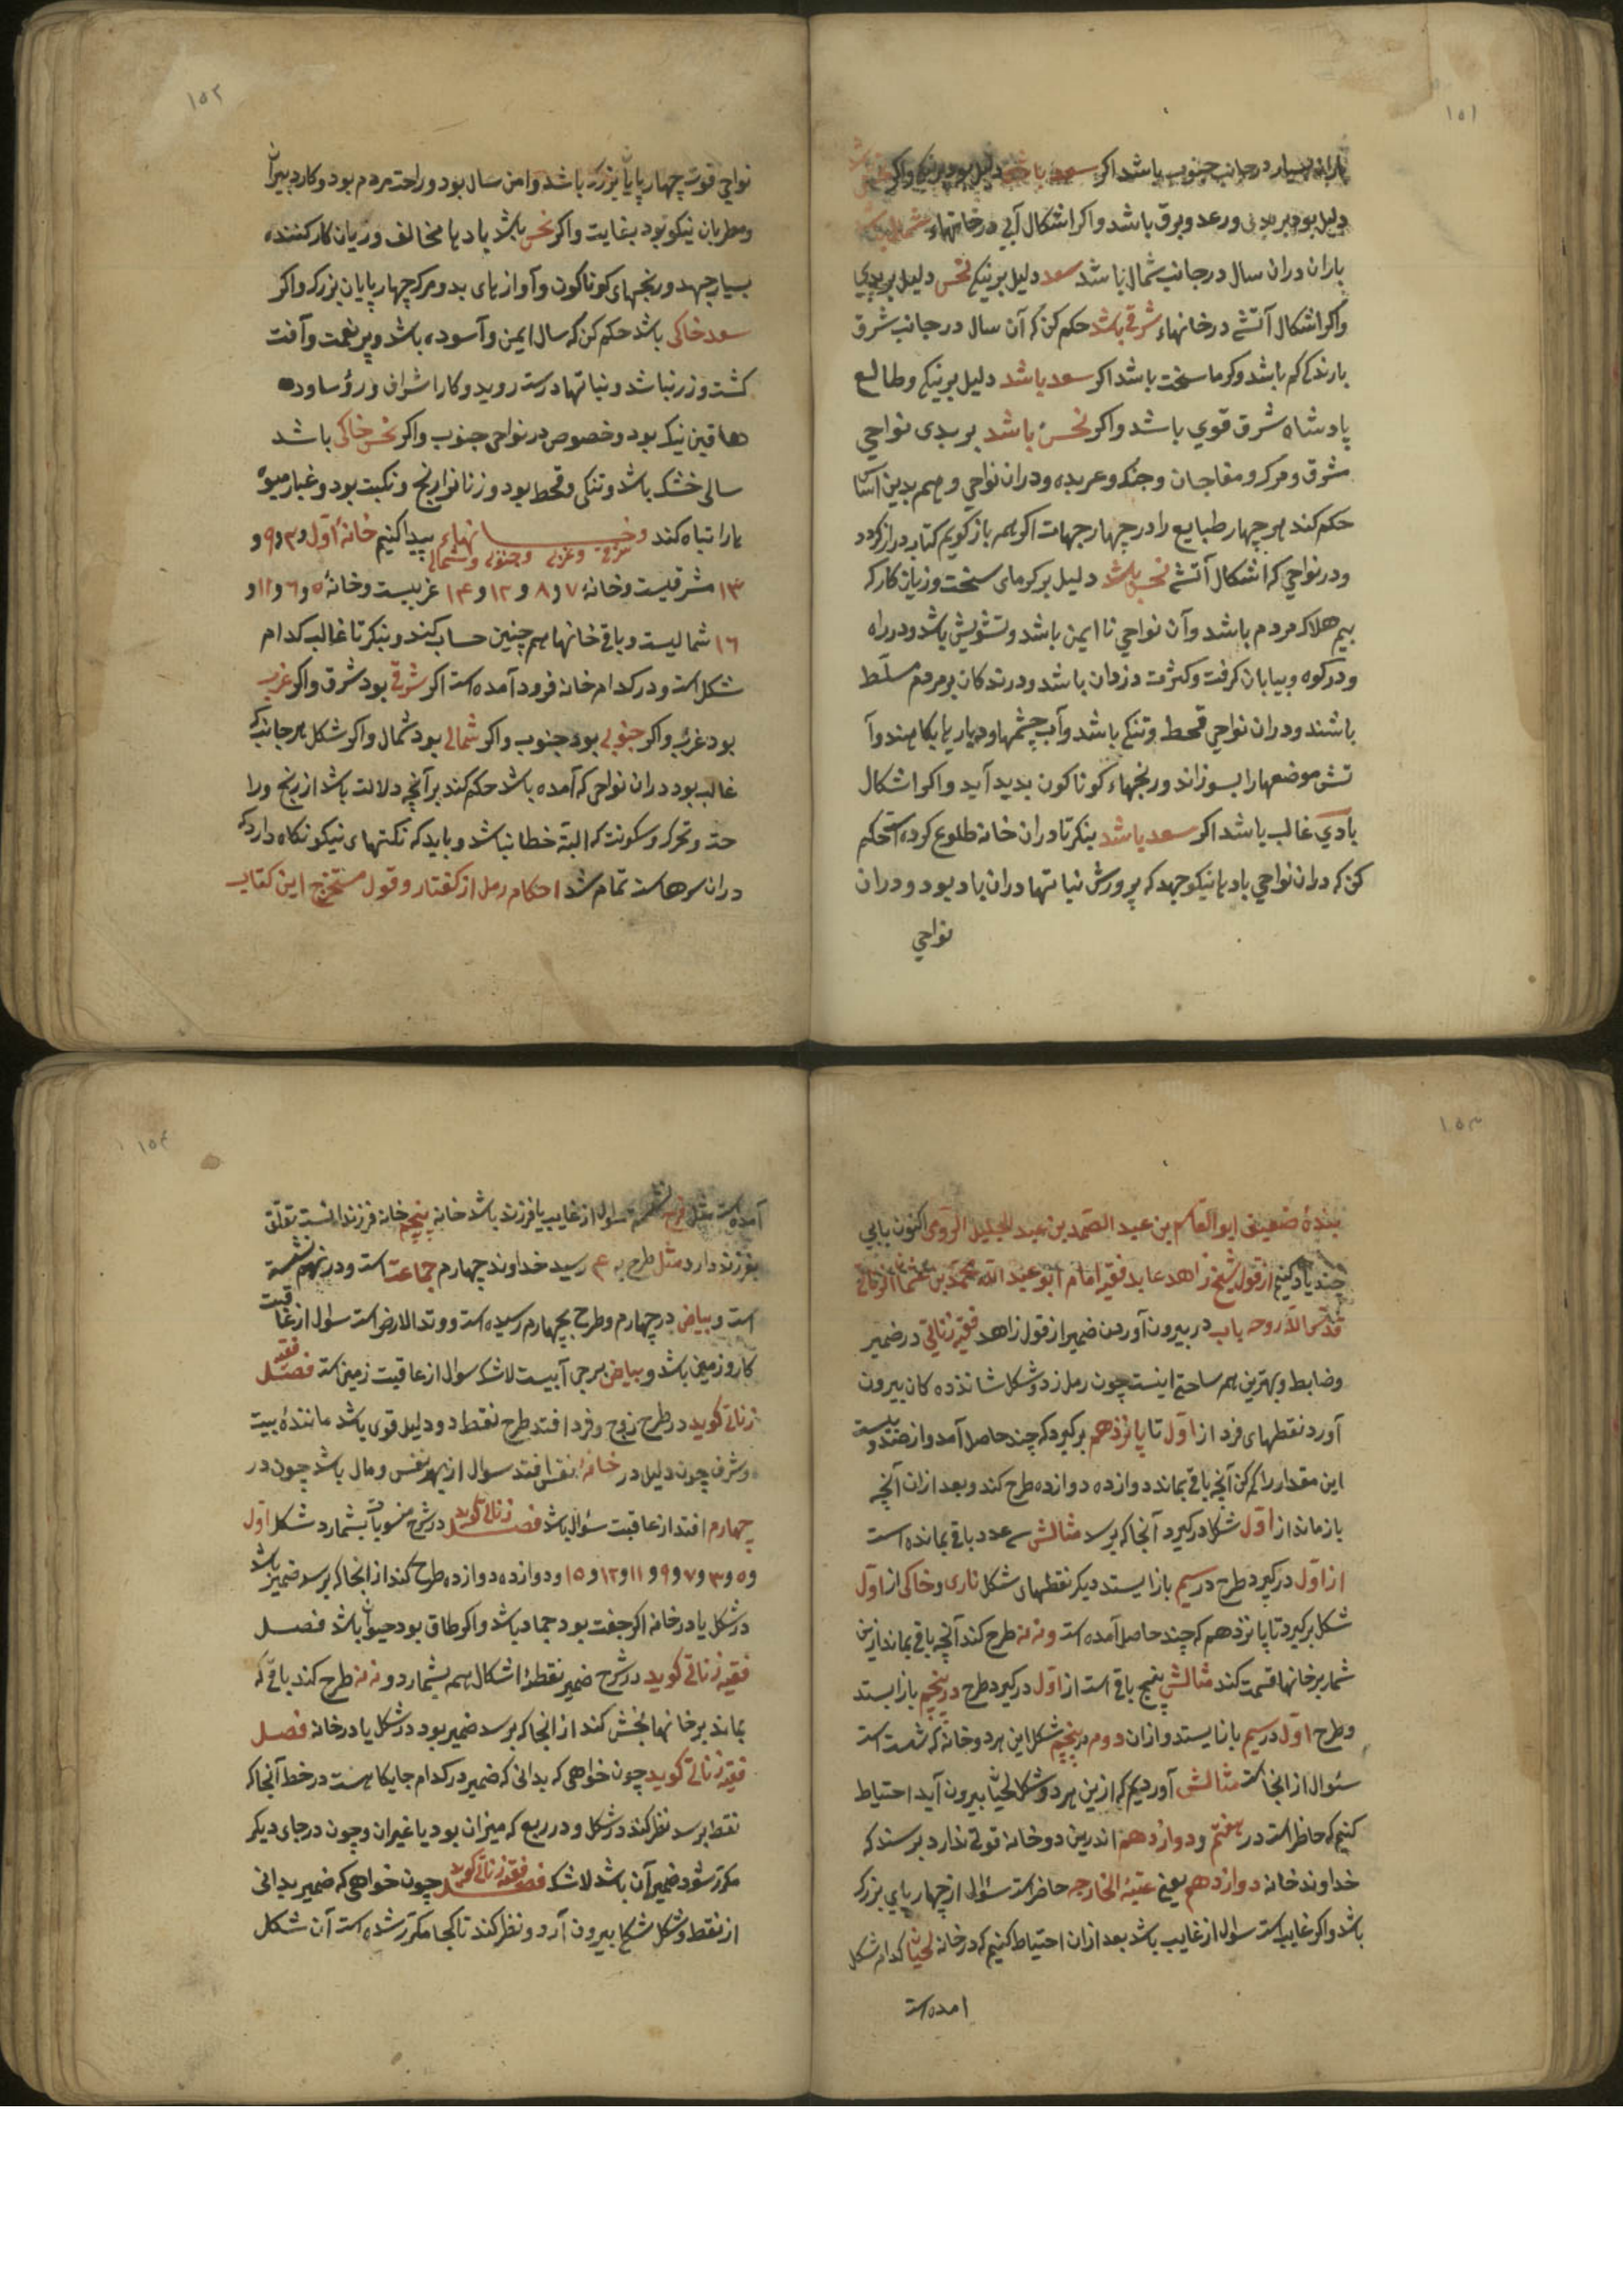 ١٥١
باران بسیار در جانب جنوب باشد اکر سعد باشد دلیل بود بر نیکی واکر
دلیل بود بر بدی ورعد وبرق باشد واکر اشکال آبی در خانهاء
باران دران سال در جانب شمال باشد سعد دلیل بر نیکی نحس دلیل بر بدی
واکر اشکال آتشی در خانهاء شرقی باشد حکم کن که آن سال در جانب شرق
بارندکی کم باشد وکرما سخت باشد اکر سعد باشد دلیل بر نیکی وطالع
پادشاه شرق قوی باشد واکر نحس باشد بر بدی نواحی
شرق ومرک ومفاجان وجنک وعربده ودران نواحی وهم بدین آسا
حکم کند هر چهار طبایع را در چهار جهات اکر همه باز کویم کتاب دراز کردد
ودر نواحی که اشکال آتشی نحس باشد دلیل بر کرمای سخت وزیان کار که
بیم هلاک مردم باشد وآن نواحی نا ایمن باشد وتشویش باشد ودر راه
ودر کوه وبیابان کرفت وکثرت دزدان باشد ودرندکان بر مردم مسلط
باشند ودران نواحی قحط وتنکی باشد وآب چشمها ودریاریا بکاهند وآ
تش موضعها را بسوزاند ورنجهاء کوناکون بدید آید واکر اشکال
بادی غالب باشد اکر سعد باشد بنکر تا دران خانه طلوع کرده است حکم
کن که دران نواحی بادها نیکو جهد که پرورش نباتها دران باد بود ودران
نواحی
١٥٢
نواحی قوت چهارپایان بزرک باشد وامن سال بود وراحت مردم بود وکار دبیران
ومطربان نیکو بود بغایت واکر نحس باشد بادها مخالف وزیان کار کننده
بسیار جهد ورنجهای کوناکون وآوازهای بد ومرک چهارپایان بزرک واکر
سعد خاکی باشد حکم کن که سال ایمن وآسوده باشد وپر نعمت وآفت
کشت وزر نباشد ونباتها درست روید وکار اشراف ورؤسا وده
دهاقین نیک بود وخصوص در نواحی جنوب واکر نحس خاکی باشد
سالی خشک باشد وتنکی وقحط بود وزنانرا رنج ونکبت بود وغبار میوه
هارا تباه کند وخانهاء پیدا کنیم خانهٔ اول و٣ و٩ و
شرقی وغربی وجنوبی وشمالی
١٣ مشرقیست وخانهٔ ٧ و٨ و١٢ و١٤ غربیست وخانهٔ ٥ و٦ و١١ و
١٦ شمالیست وباقی خانها هم چنین حساب کیند وبنکر تا غالب کدام
شکل است ودر کدام خانه فرود آمده است اکر شرقی بود شرق واکر غربی
بود غرب واکر جنوبی بود جنوب واکر شمالی بود شمال واکر شکل هر جانب که
غالب بود دران نواحی که آمده باشد حکم کند بر آنچه دلالت باشد از رنج ورا
حت وتحرک وسکونت که البته خطا نباشد وباید که نکتهای نیکو نکاه دارد که
دران سرهاست تمام شد احکام رمل از کفتار وقول مستخرج این کتاب
١٥٣
بندهٔ ضعیف ابوالقاسم بن عبد الصمد بن عبد الجلیل الروی اکنون بابی
چند یاد کنیم از قول شیخ زاهد عابد فقیه امام ابو عبد الله محمد بن عثمان الزناتی
قدس الله روحه باب در بیرون آوردن ضمیر از قول زاهد فقیه زناتی در ضمیر
وضابط وبهترین هم ساحتی اینست چون رمل زد وشکل شانزده کان بیرون
آورد نقطهای فرد از اول تا پانزدهم برکیرد که چند حاصل آمد واز صد وبیست
این مقدار را کم کن آنچه باقی بماند دوازده دوازده طرح کند وبعد ازان آنچه
باز ماند از اول شکل درکیرد آنجا که برسد مثالش سی عدد باقی بمانده است
از اول درکیرد طرح در سیم باز ایستد دیکر نقطهای شکل ناری وخاکی از اول
شکل برکیرد تا پانزدهم که چند حاصل آمده است ونه نه طرح کند آنچه باقی بماند ازین
شمار بر خانها قسمت کند مثالش پنج باقی است از اول درکیرد طرح در پنجم باز ایستد
وطرح اول در سیم باز ایستد وازان دوم در پنجم شکل این هر دو خانه که شست است
سئوال از انجا است مثالش آوردیم که ازین هر دو شکل لحیان بیرون آید احتیاط
کنیم که حاظر است در هفتم ودوازدهم اندرین دو خانه قوتی ندارد برسند که
خداوند خانه دوازدهم یعنی عتبة الخارجه حاضر است سئوال از چهار پای بزرک
باشد واکر غایب است سوال از غایب باشد بعد ازان احتیاط کنیم که در خانه لحیان کدام شکل
امده است
١٥٤
آمده است مثل فرح نشسته سوال از غایب یا فرزند باشد خانه پنجم خانه فرزندانست تعلق
بفرزند دارد مثل طرح به ٤ رسید خداوند چهارم جماعت است ودر نهم نشسته
است وبیاض در چهارم وطرح بچهارم رسیده است ووتد الارض است سئوال از عاقبت
کار وزمین باشد وبیاض برجی آبیست لاشک سوال از عاقبت زمین است فصل فقیه
زناتی کوید در طرح زوج وفرد افتد طرح نقطه دو دلیل قوی باشد مانندهٔ بیت
وشرف چون دلیل در خانهٔ نفس افتد سوال از بهر نفس ومال باشد چون در
چهارم افتد از عاقبت سئوال باشد فصل زناتی کوید در شرح منسوبات بشمارد شکل اول
و٥ و٣ و٧ و٩ و١١ و١٢ و١٥ ودوازده دوازده طرح کند از انجا که برسد ضمیر باشد
در شکل یا در خانه اکر جفت بود جماد باشد واکر طاق بود حیوان باشد فصل
فقیه زناتی کوید در شرح ضمیر نقطهٔ اشکال همه بشمارد ونه نه طرح کند باقی که
بماند بر خانها بخش کند از انجا که برسد ضمیر بود در شکل یا در خانه فصل
فقیه زناتی کوید چون خواهی که بدانی که ضمیر در کدام جایکاهست در خط آنجا که
نقطه برسد نظر کند در شکل ودر ربع که میزان بود یا غیران وچون در جای دیکر
مکرر شود ضمیر آن باشد لاشک فصل فقیه زناتی کوید چون خواهی که ضمیر بدانی
از نقط وشکل شکل بیرون آرد ونظر کند تا کجا مکرر شده است آن شکل